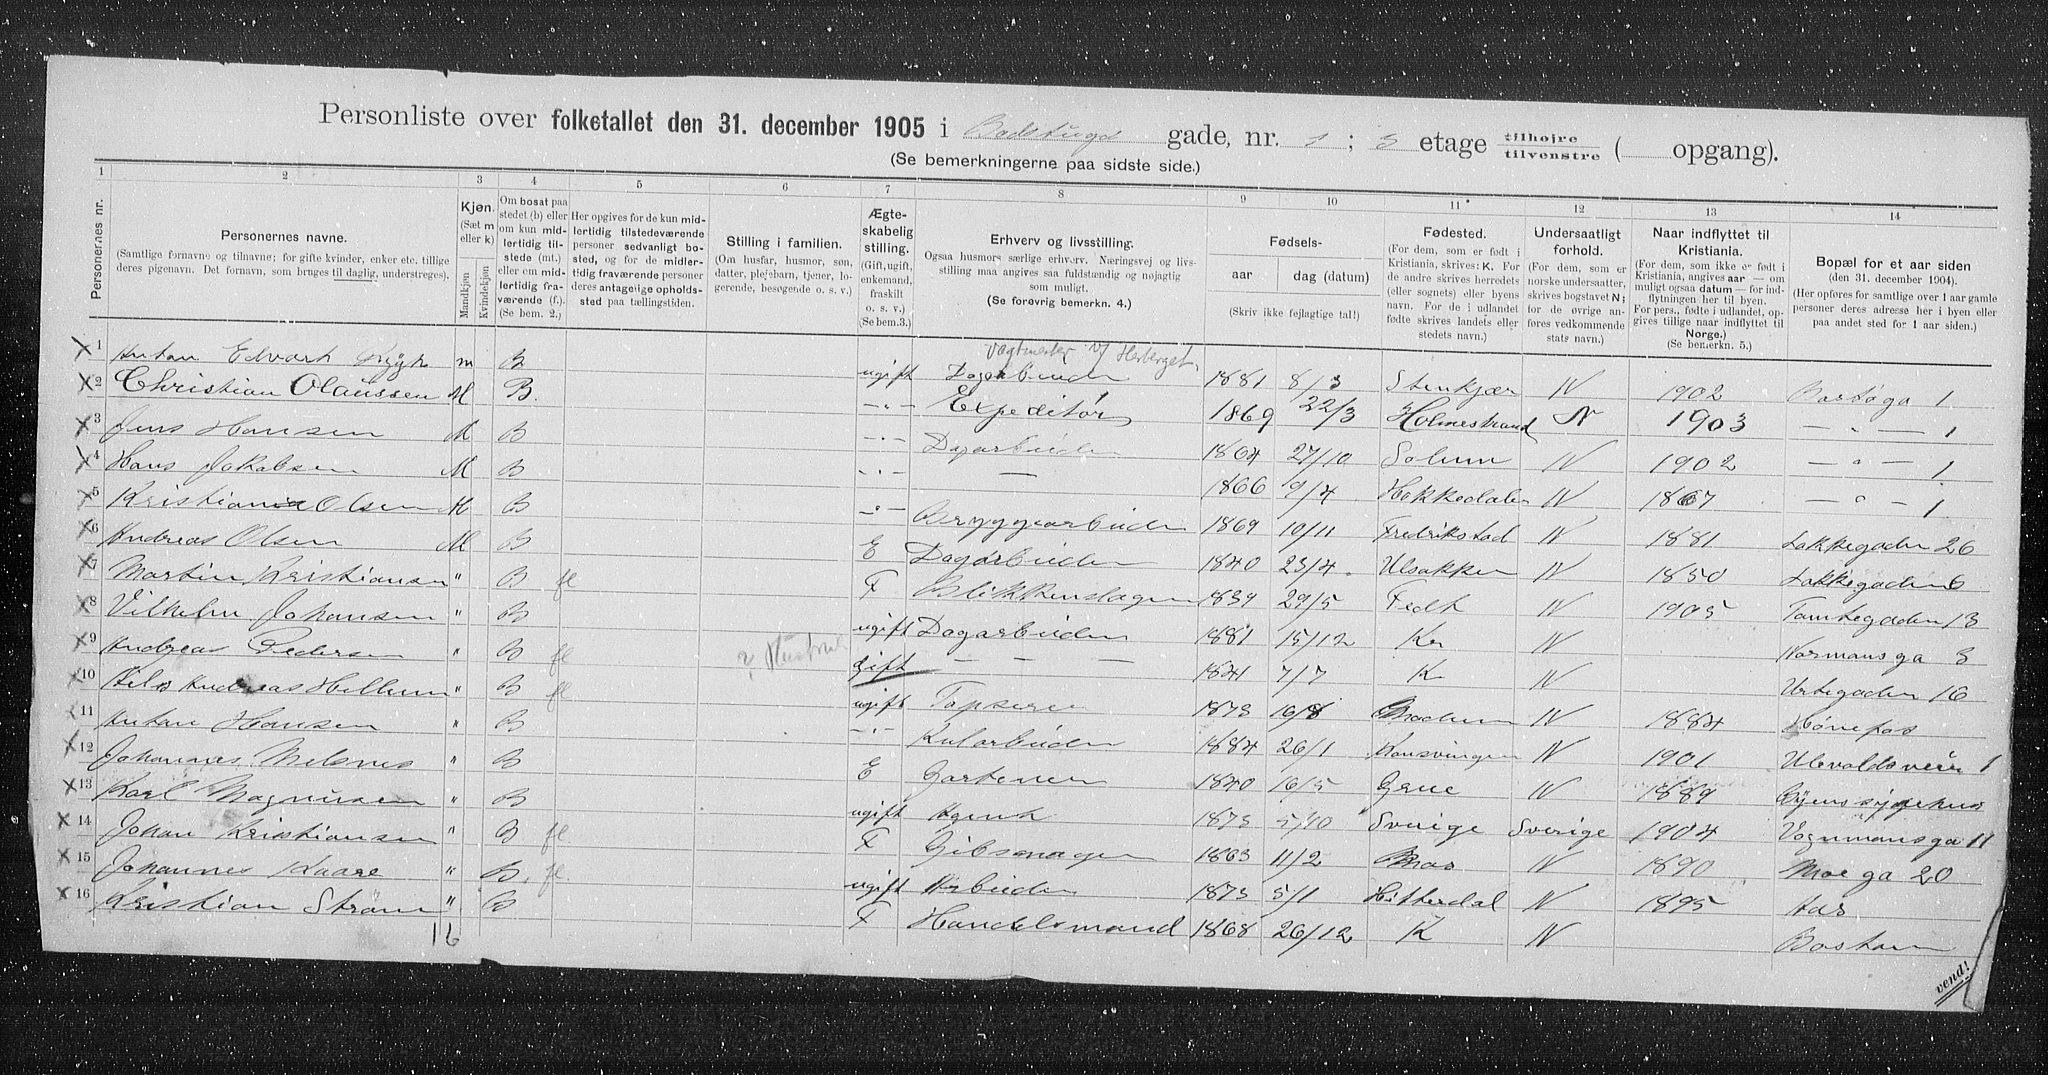 Personliste over folketallet den 31. december 1905 i Badstuga gade, nr. 1 ; 3 etage tilhøjre tilvenstre ( opgang).
(Se bemerkningerne paa sidste side.)
1 2 3 4 5 6 7 8 9 10 11 12 13 14
Personernes nr.
Personernes navne.
(Samtlige fornavne og tilnavne; for gifte kvinder, enker etc. tillige deres pigenavn. Det fornavn, som bruges til daglig, understreges).
Kjøn.
(Sæt m eller k)
Mandkjøn
Kvindekjøn
Om bosat paa stedet (b) eller om kun midlertidig tilstede (mt.) eller om midlertidig fraværende (f.). (Se bem. 2.)
Her opgives for de kun midlertidig tilstedeværende personer sedvanligt bosted, og for de midlertidig fraværende personer deres antagelige opholdssted paa tællingstiden.
Stilling i familien.
(Om husfar, husmor, søn, datter, plejebarn, tjener, logerende, besøgende o. s. v.)
Ægteskabelig stilling.
(Gift, ugift, enkemand, fraskilt o. s. v.)
(Se bem. 3.)
Erhverv og livsstilling.
Ogsaa husmors særlige erhverv. Næringsvej og livsstilling maa angives saa fuldstændig og nøjagtig som muligt.
(Se forøvrig bemerkn. 4.)
Fødsels-
aar dag (datum)
(Skriv ikke fejlagtige tal!)
Fødested.
(For dem, som er født i Kristiania, skrives: K. For de andre skrives herredets (eller sognets) eller byens navn. For de i udlandet fødte skrives landets eller stedets navn.)
Undersaatligt forhold.
(For dem, som er norske undersaatter, skrives bogstavet N; for de øvrige anføres vedkommende stats navn.)
Naar indflyttet til Kristiania.
(For dem, som ikke er født i Kristiania, angives aar — om muligt ogsaa datum — for indflytningen her til byen. For pers., fødte i udlandet, opgives tillige naar indflyttet til Norge.) (Se bemerkn. 5.)
Bopæl for et aar siden
(den 31. december 1904).
(Her opføres for samtlige over 1 aar gamle personer deres adresse her i byen eller paa andet sted for 1 aar siden.)
Vagtmester v/ Herberget
1 Anton Edvart m B ugift Dagarbeider 1881 8/3 Stenkjær N 1902 Bastøga 1
2 Christian Olaussen M B. — " — Expeditør 1869 22/3 Holmestrand N 1903 — " — 1
3 Jens Hansen M B — " — Dagarbeider 1864 27/10 Solum N 1902 — " — 1
4 Hans Jakobsen M B — " — — 1866 9/4 Hakkedalen N 1867 — " — 1
5 Kristian Olsen M B — " — Bryggearbeider 1869 10/11 Fredrikstad N 1881 Lakkegaden 26
6 Andreas Olsen M B E Dagarbeider 1840 23/4 Ulsakken N 1850 Lakkegaden 6
7 Martin Kristiansen " B fl F Blikkenslager 1839 29/5 Fedt N 1905 Tomtegaden 13
8 Vilhelm Johansen " B ugift Dagarbeider 1881 15/12 Kr N Normansga 3
9 Andreas Pedersen " B fl gift — — — 1841 7/7 K N Urtegaden 16
10 Nils Andreas Hellum " B fl ugift Tapserer 1873 16/8 Modum N 1884 Hønefos
11 Anton Hansen " B — " — Kularbeider 1884 26/1 Konsvingen N 1901 Ulevaldsveien 1
12 Johannes Melsnes " B E Gartener 1840 16/5 Grue N 1889 Byens sygehus
13 Karl Magnusen " B ugift Agent 1873 5/10 Sverige Sverige 1904 Vognmansga 11
14 Johan Kristiansen " B fl F Gibsmager 1863 11/2 Mos N 1890 Moe ga 20
15 Johannes Kaare " B. fl. ugift Arbeider 1873 5/1 Hitterdal N 1895 Aas
16 Kristian Strøm " B F Handelsmand 1868 26/12 K N Boston
16
vend!